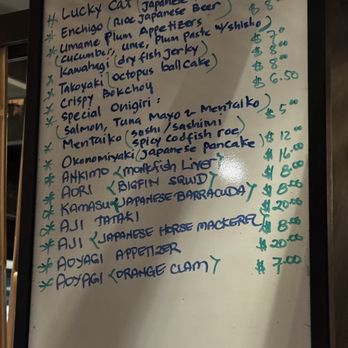 * Lucky Cat (Japanese
* Enchigo (Rice Japanese Beer) $ 8
* Umame Plum Appetizers
(cucumber, ume, Plum paste w/shisho) $ 7.0
* Kawahagi (dry fish jerky) $ 8.00
* Takoyaki (octopus ball cake) $ 8
* Crispy Bokchoy $ 6.50
* Special Onigiri:
(salmon, Tuna Mayo & Mentaiko) $ 5.00
* Mentaiko (sushi/sashimi)
(spicy codfish roe) $ 12.00
* Okonomiyaki (Japanese pancake) $ 16.00
* ANKIMO (monkfish Liver) $ 8.00
* AORI (BIGFIN SQUID) $ 8.00
* KAMASU (JAPANESE BARRACUDA) $ 8.00
* AJI TATAKI $ 20.00
* AJI (JAPANESE HORSE MACKEREL) $ 8.00
* AOYAGI APPETIZER $ 20.00
* AOYAGI (ORANGE CLAM) $ 7.00